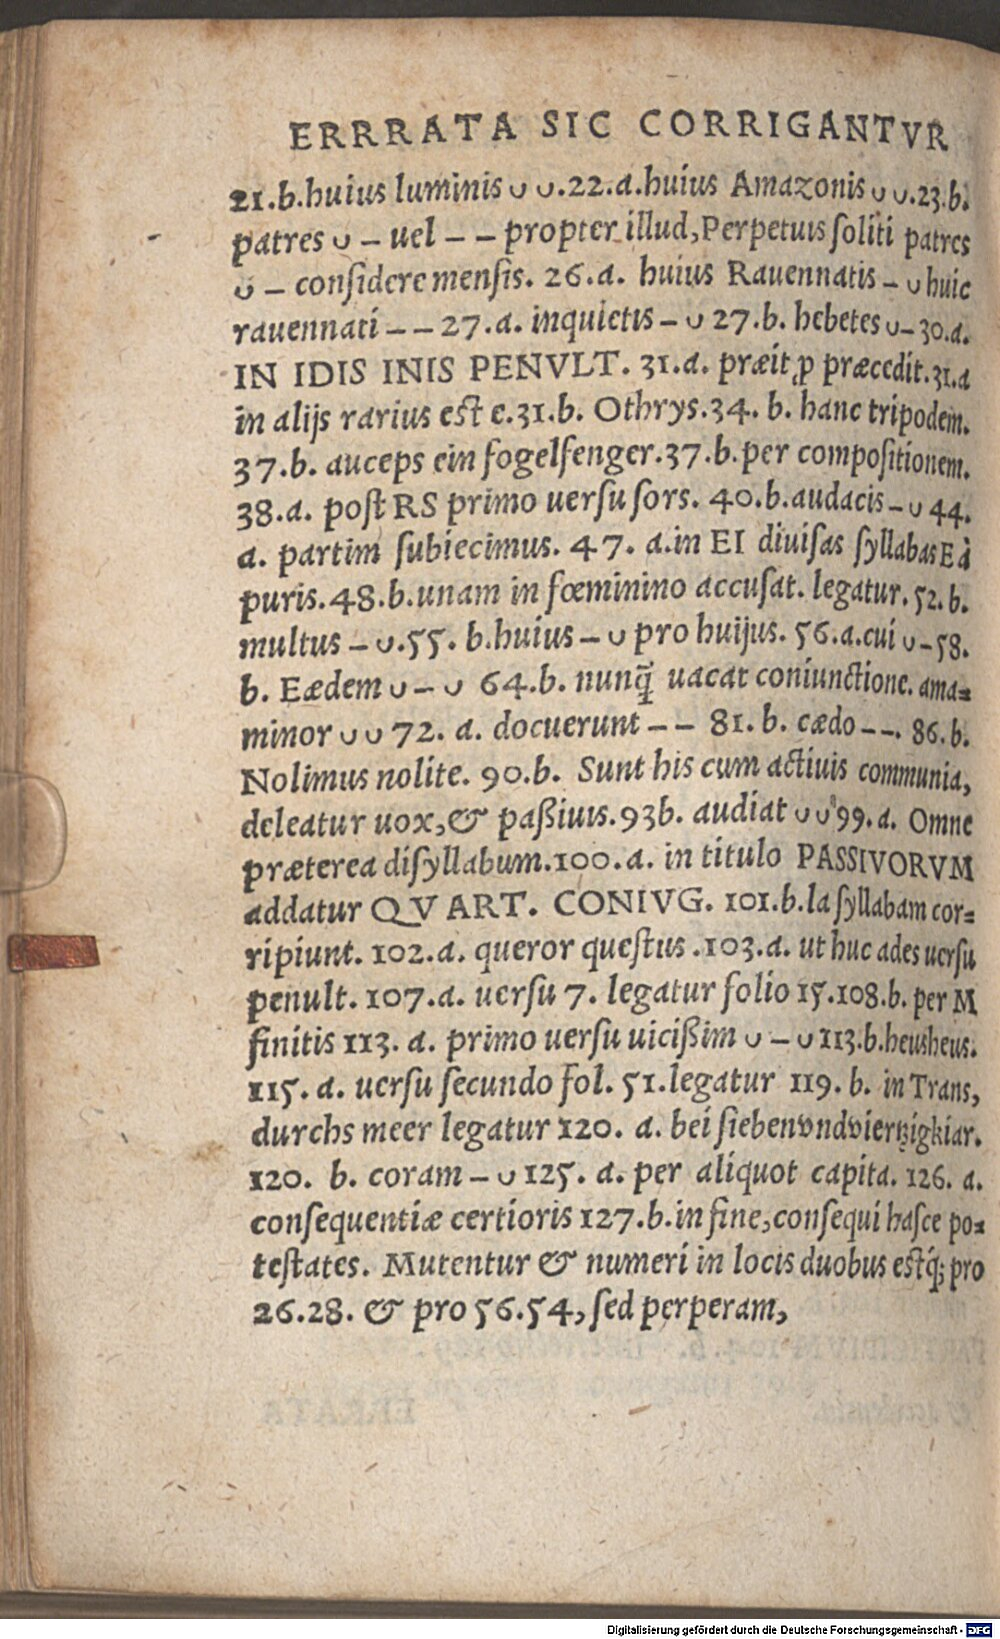 ERRRATA SIC CORRIGANTVR
21.b.huius luminis ∪ ∪.22.a.huius Amazonis ∪ ∪.23.b.
patres ∪ – uel – – propter illud,Perpetuis soliti patres
∪ – considere mensis. 26.a. huius Rauennatis – ∪ huic
rauennati – – 27.a. inquietis – ∪ 27.b. hebetes ∪– 30.a.
IN IDIS INIS PENVLT. 31.a. præit ꝓ præcedit.31.a
in alijs rarius est e.31.b. Othrys.34. b. hanc tripodem.
37.b. auceps ein fogelfenger.37.b.per compositionem.
38.a. post RS primo uersu sors. 40.b.audacis – ∪ 44.
a. partim subiecimus. 47. a.in EI diuisas syllabas E à
puris.48.b.unam in fœminino accusat. legatur. 52.b.
multus – ∪.55. b.huius – ∪ pro huijus. 56.a.cui ∪–58.
b. Eædem ∪ – ∪ 64.b. nunq̃ uacat coniunctione. ama=
minor ∪ ∪ 72. a. docuerunt – – 81. b. cædo – –. 86.b.
Nolimus nolite. 90.b. Sunt his cum actiuis communia,
deleatur uox,& paßiuis.93b. audiat ∪ ∪ 99.a. Omne
præterea disyllabum.100.a. in titulo PASSIVORVM
addatur QVART. CONIVG. 101.b.la syllabam cor=
ripiunt. 102.a. queror questus .103.a. ut huc ades uersu
penult. 107.a. uersu 7. legatur folio 15.108.b. per M
finitis 113. a. primo uersu uicißim ∪ – ∪ 113.b.heusheus.
115. a. uersu secundo fol. 51.legatur 119. b. in Trans,
durchs meer legatur 120. a. bei siebenvndviertzigkiar.
120. b. coram – ∪ 125. a. per aliquot capita. 126. a.
consequentiæ certioris 127.b.in fine,consequi hasce po=
testates. Mutentur & numeri in locis duobus estq́; pro
26.28. & pro 56.54,sed perperam,
Digitalisierung gefördert durch die Deutsche Forschungsgemeinschaft - DFG